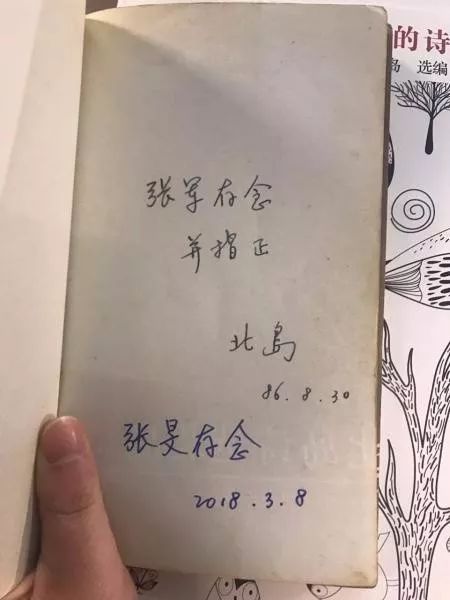 的诗
岛 选编
张军存念
并指正
北岛
86.8.30
张旻存念
2018.3.8